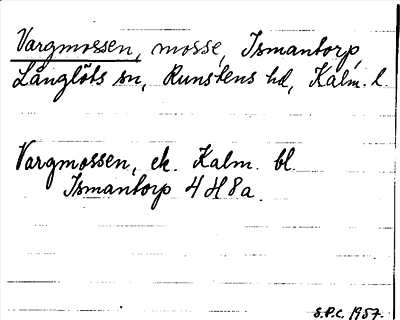 Vargmossen, mosse, Ismantorp,
Långlöts sn, Runstens hd, Kalm. l.
Vargmossen, ek. Kalm. bl.
Ismantorp 4 H 8 a.
S.P.C. 1957.